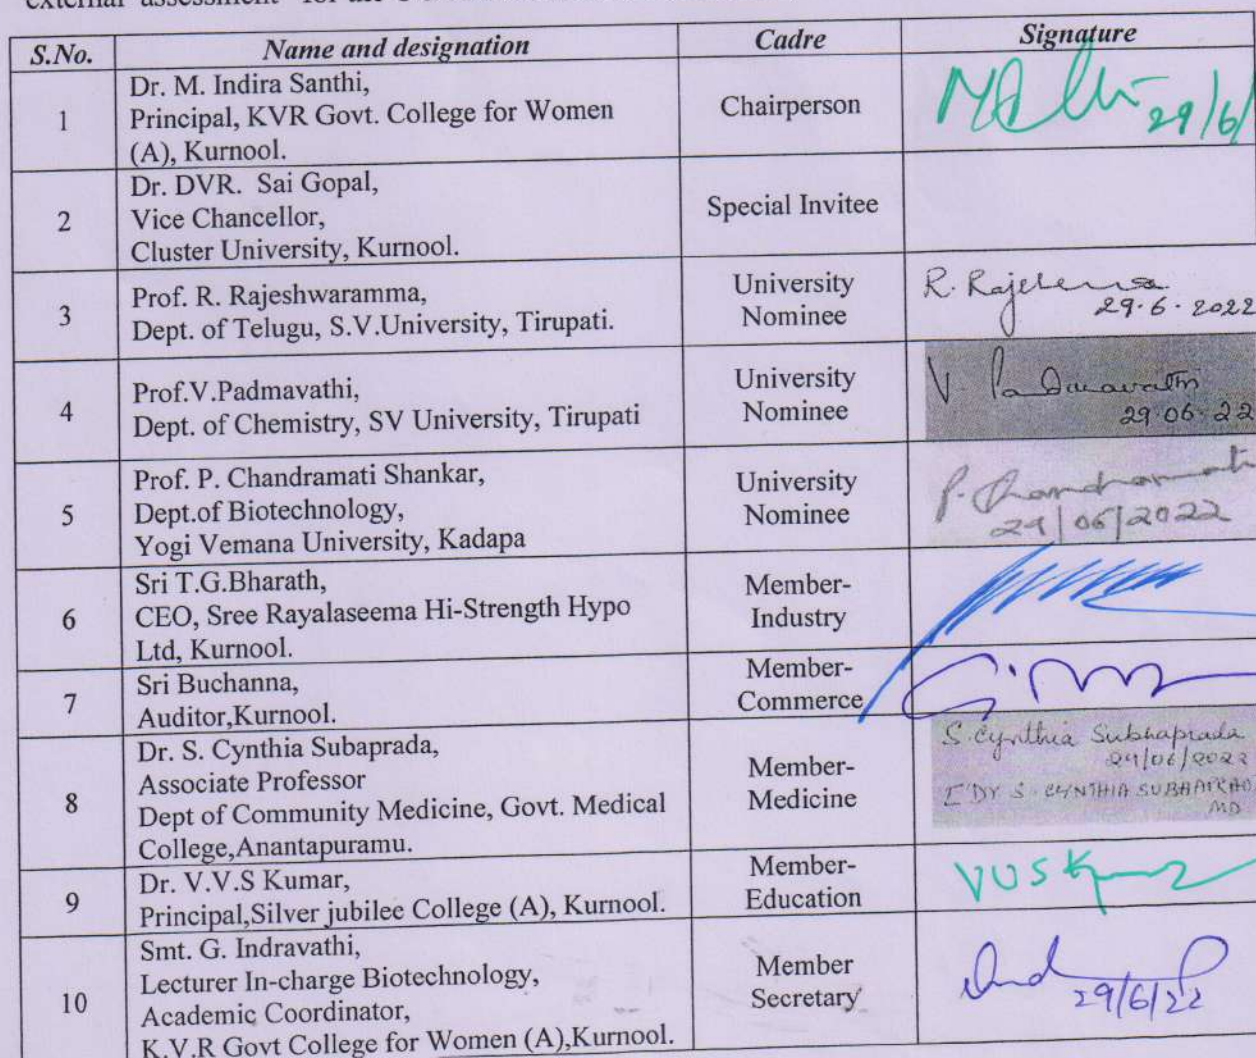 external assessment for the
S.No. Name and designation Cadre Signature
1 Dr. M. Indira Santhi,
Principal, KVR Govt. College for Women
(A), Kurnool.
Chairperson
29/6/
2 Dr. DVR. Sai Gopal,
Vice Chancellor,
Cluster University, Kurnool.
Special Invitee
3 Prof. R. Rajeshwaramma,
Dept. of Telugu, S.V.University, Tirupati.
University
Nominee
29.6.2022
4 Prof.V.Padmavathi,
Dept. of Chemistry, SV University, Tirupati
University
Nominee
V. Padmavathi
29.06.22
5 Prof. P. Chandramati Shankar,
Dept.of Biotechnology,
Yogi Vemana University, Kadapa
University
Nominee
P. Chandramati
29/06/2022
6 Sri T.G.Bharath,
CEO, Sree Rayalaseema Hi-Strength Hypo
Ltd, Kurnool.
Member-
Industry
7 Sri Buchanna,
Auditor,Kurnool.
Member-
Commerce
8 Dr. S. Cynthia Subaprada,
Associate Professor
Dept of Community Medicine, Govt. Medical
College,Anantapuramu.
Member-
Medicine
S. Cynthia Subhaprada
29/06/2022
S. CYNTHIA SUBHAPRAD
MD
9 Dr. V.V.S Kumar,
Principal,Silver jubilee College (A), Kurnool.
Member-
Education
10 Smt. G. Indravathi,
Lecturer In-charge Biotechnology,
Academic Coordinator,
K.V.R Govt College for Women (A),Kurnool.
Member
Secretary
29/6/22